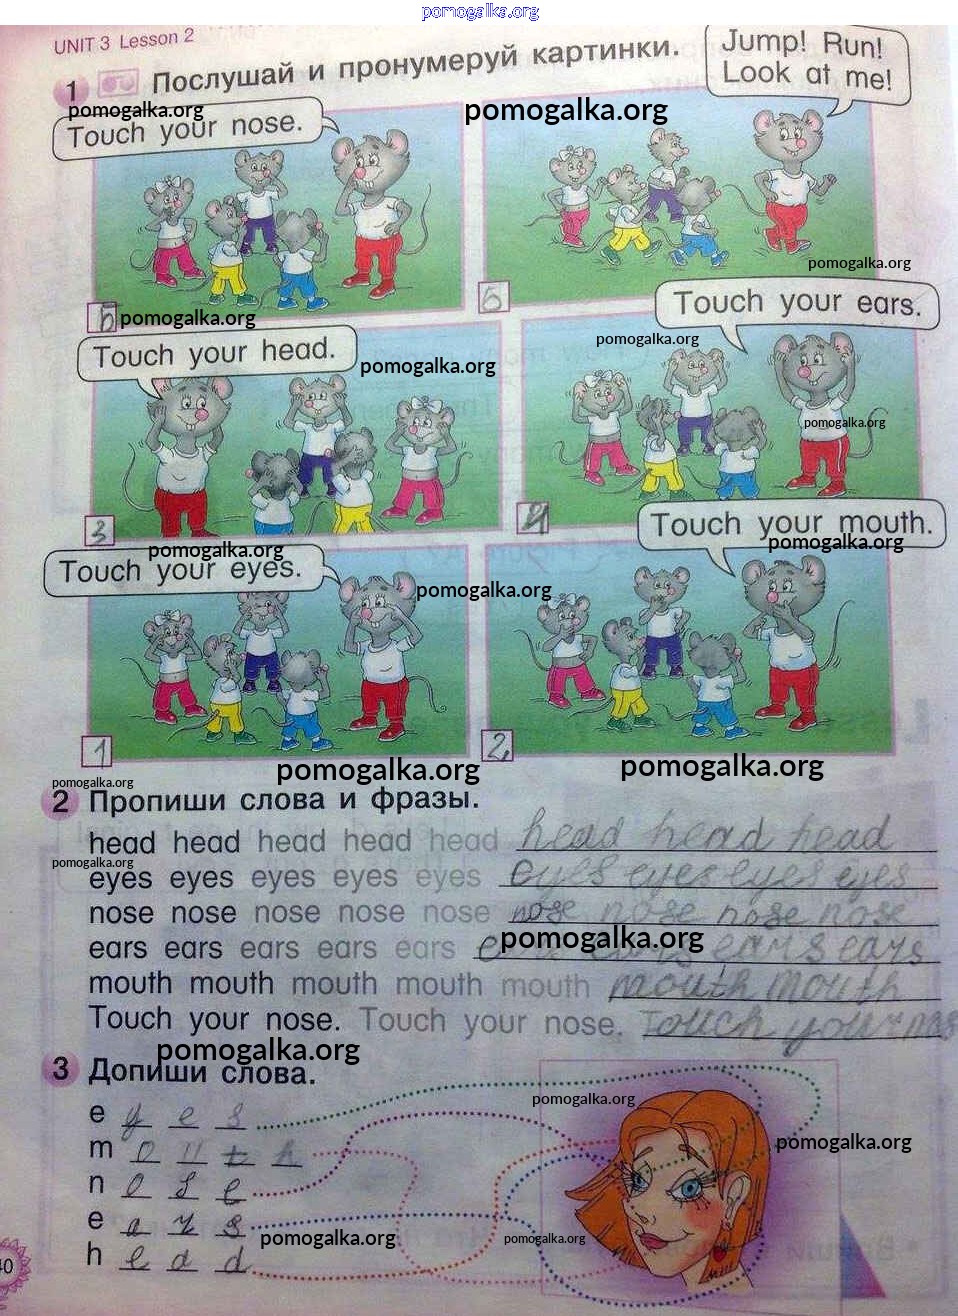 pomogalka.org
UNIT 3 Lesson 2
1 Послушай и пронумеруй картинки.
Jump! Run!
Look at me!
pomogalka.org
pomogalka.org
Touch your nose.
pomogalka.org
6
pomogalka.org
5
Touch your ears.
Touch your head.
pomogalka.org
pomogalka.org
pomogalka.org
3
4
Touch your mouth.
pomogalka.org
pomogalka.org
Touch your eyes.
pomogalka.org
1
2
pomogalka.org
pomogalka.org
pomogalka.org
2 Пропиши слова и фразы.
head head head head head head head head
pomogalka.org
eyes eyes eyes eyes eyes eyes eyes eyes eyes
nose nose nose nose nose nose nose nose nose
pomogalka.org
ears ears ears ears ears ears ears ears
mouth mouth mouth mouth mouth mouth mouth
Touch your nose. Touch your nose. Touch your nos
pomogalka.org
3 Допиши слова.
pomogalka.org
e y e s
pomogalka.org
m o u t h
n o s e
e a r s
pomogalka.org
pomogalka.org
h e a d
40